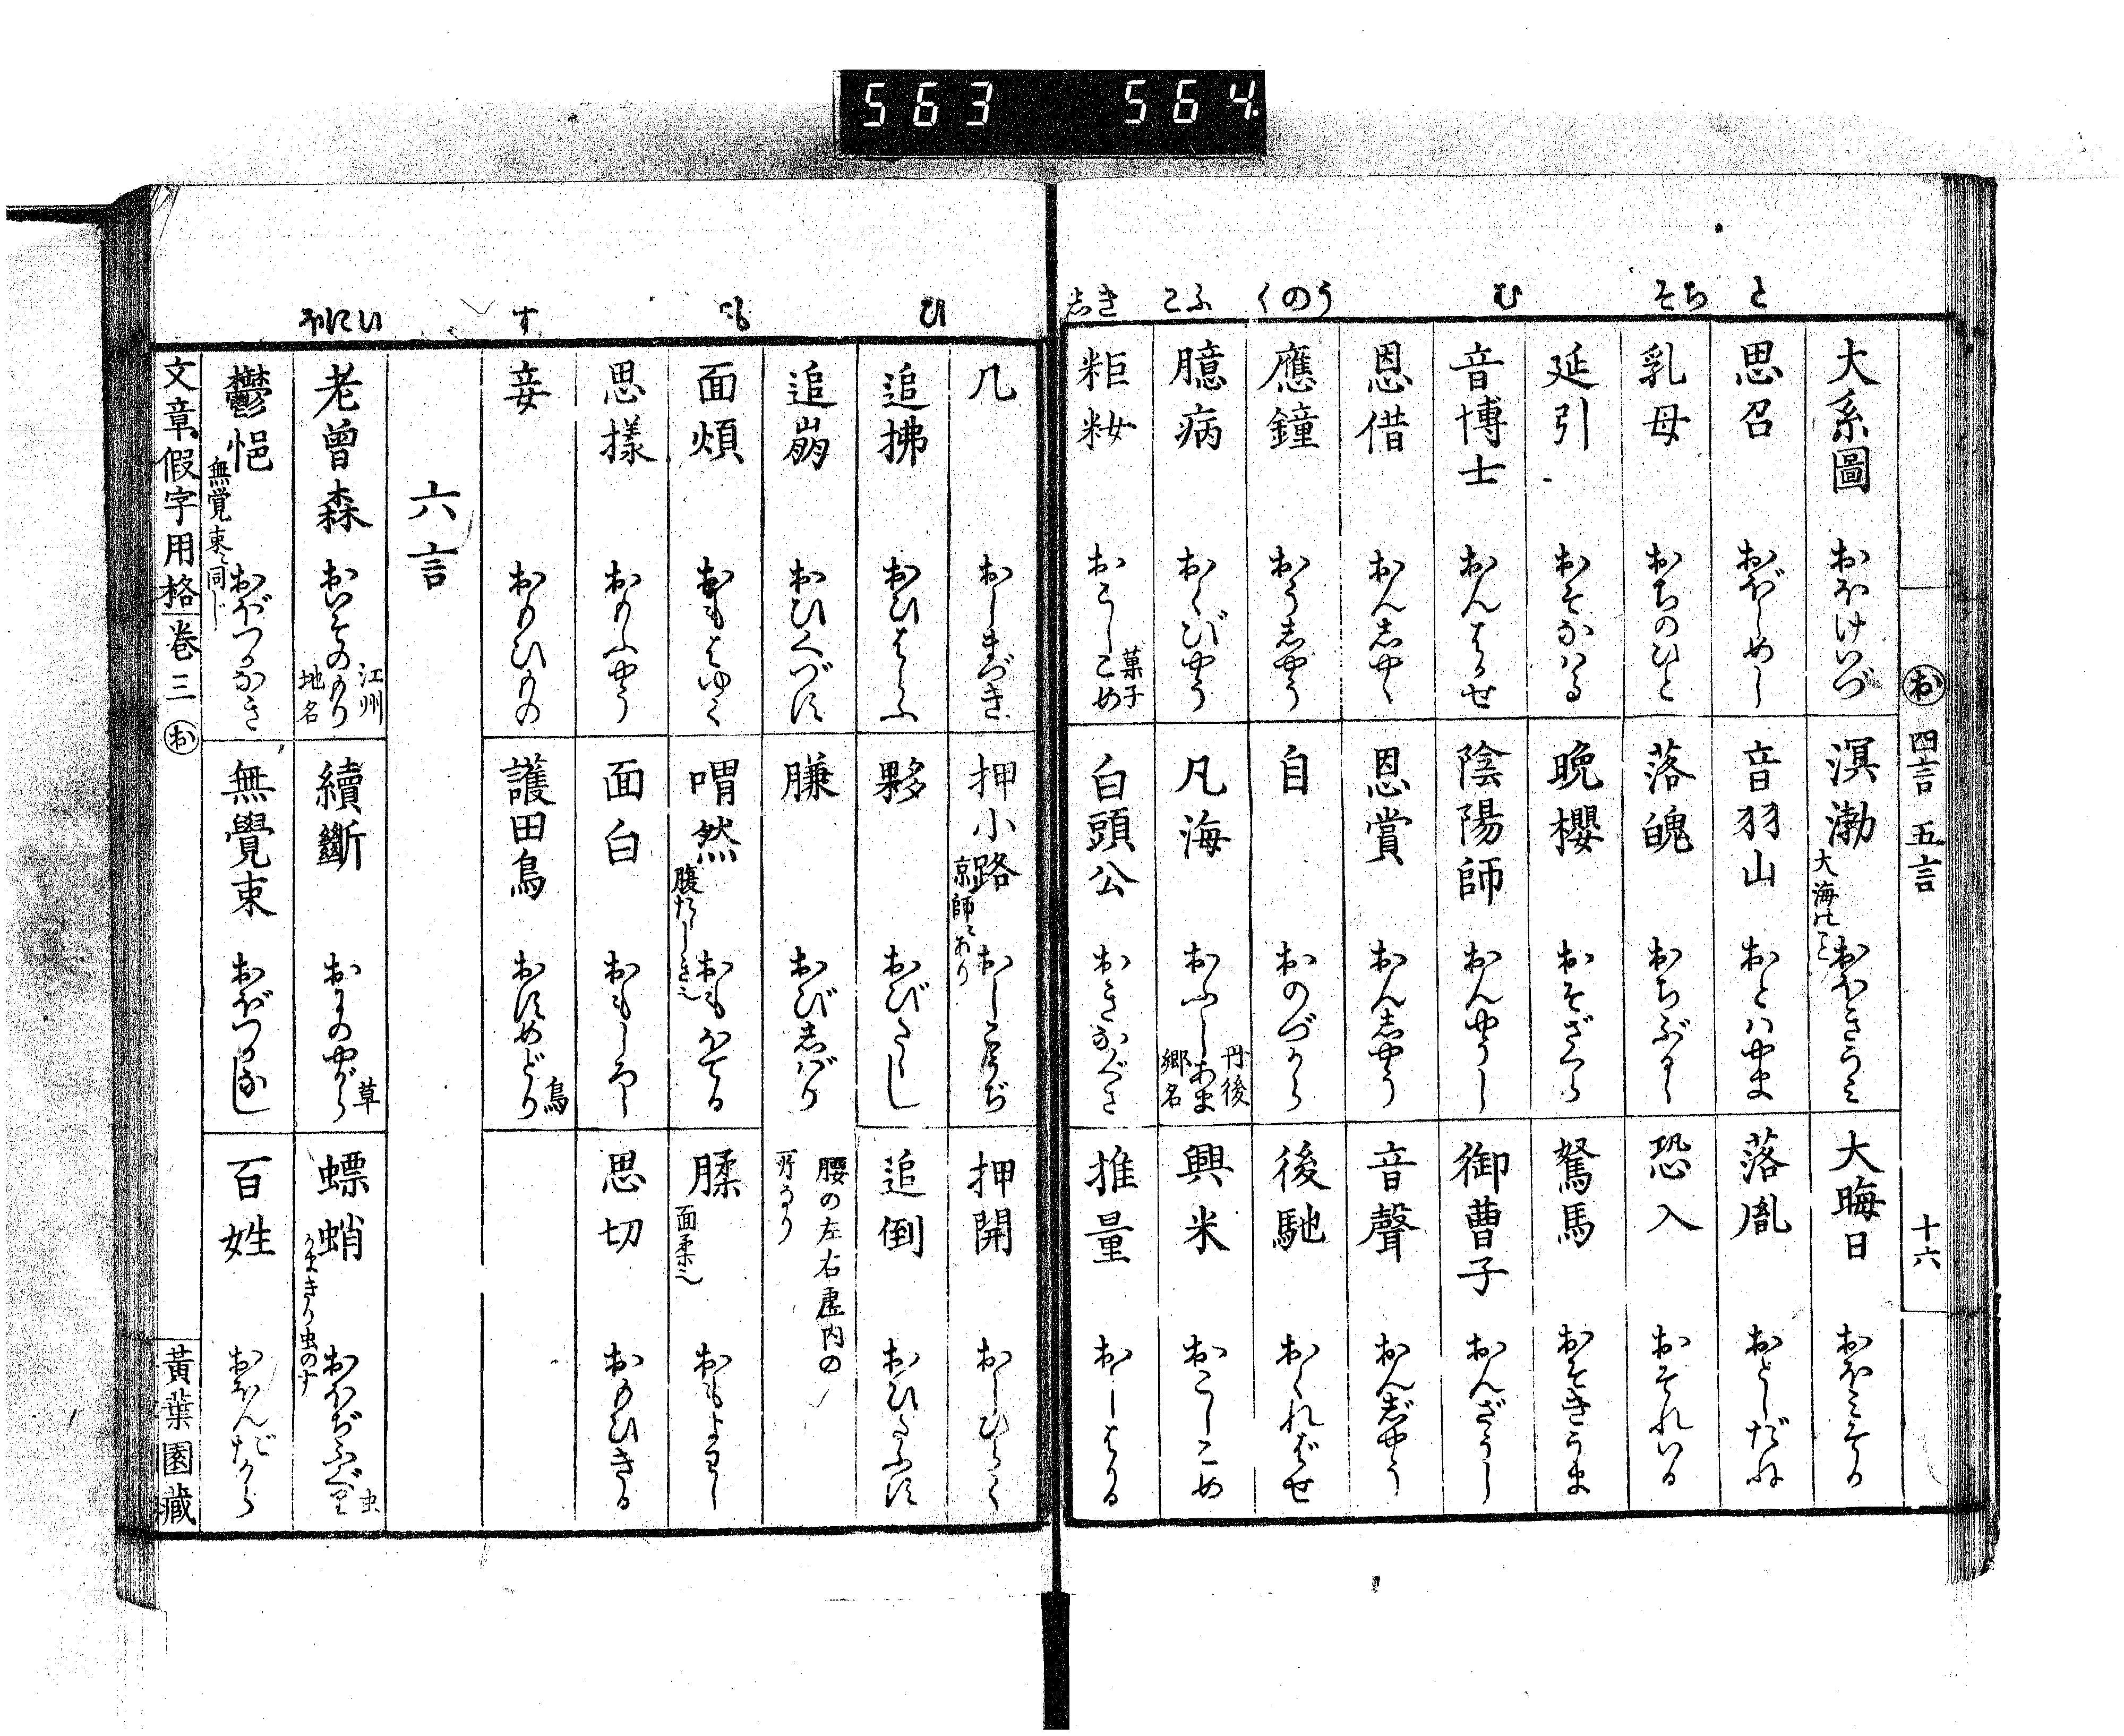 563 564
と
そち
む
くのう
こふ
しき
お 四言 五言 十六
大系圖 おほけいづ
溟渤 大海のこと おほきうみ
大晦日 おほみそか
思召 おぼしめし
音羽山 おとはやま
落胤 おとしだね
乳母 おちのひと
落魄 おちぶるゝ
恐入 おそれいる
延引 おそなはる
晩櫻 おそざくら
駑馬 おそきうま
音博士 おんはかせ
陰陽師 おんやうし
御曹子 おんざうし
恩借 おんしやく
恩賞 おんしやう
音聲 おんじやう
應鐘 おうしやう
自 おのづから
後馳 おくればせ
臆病 おくびやう
凡海 おふしあま 丹後郷名
興米 おこしこめ
粔籹 おこしこめ 菓子
白頭公 おきなぐさ
推量 おしはかる
ひ
も
す
ほにい
几 おしまづき
押小路 京師にあり おしこうぢ
押開 おしひらく
追拂 おひはらふ
夥 おびたゝし
追倒 おひたふす
追崩 おひくづす
膁 おびしばり 腰の左右虚肉の所なり
面煩 おもはゆく
喟然 腹だゝしき也 おもほてる
腬 面柔也 おもよわし
思樣 おもふやう
面白 おもしろし
思切 おもひきる
妾 おもひもの
護田鳥 おすめどり 鳥
六言
老曾森 おいそのもり 江州地名
續斷 おにのやがら 草
螵蛸 かまきり虫のす おほぢふぐり 虫
鬱悒 無覚束に同じ おぼつかなき
無覺束 おぼつかなし
百姓 おほんだから
文章假字用格 卷三 お 黃葉園藏